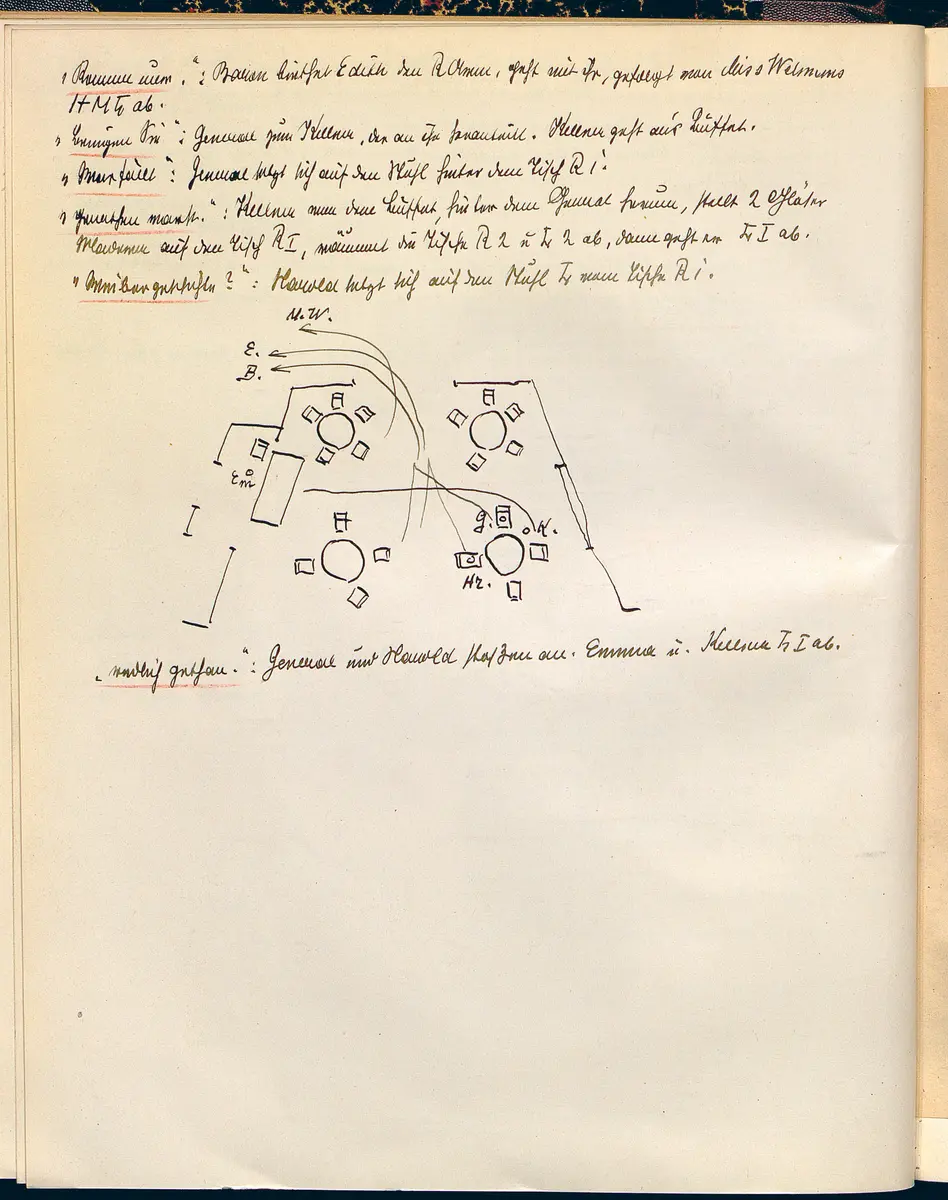 „Komme nun.": Baron bietet Edith den R Arm, geht mit ihr, gefolgt von Miss Welmens
HML ab.
„Bringen Sie": General zum Kellner, der an ihn herantritt. Kellner geht ans Buffet.
General setzt sich auf den Stuhl hinter dem Tisch R 1.
Kellner vom Buffet, hinter dem General herum, stellt 2 Gläser
Madeira auf den Tisch R I, räumt die Tische R 2 u L 2 ab, dann geht er L I ab.
„Weibergeschichte?": Harold setzt sich auf den Stuhl L vom Tische R 1.
M.W.
E.
B.
Em
G. K.
Hr.
„redlich gethan.": General und Harold stoßen an. Emma u. Kellner L I ab.